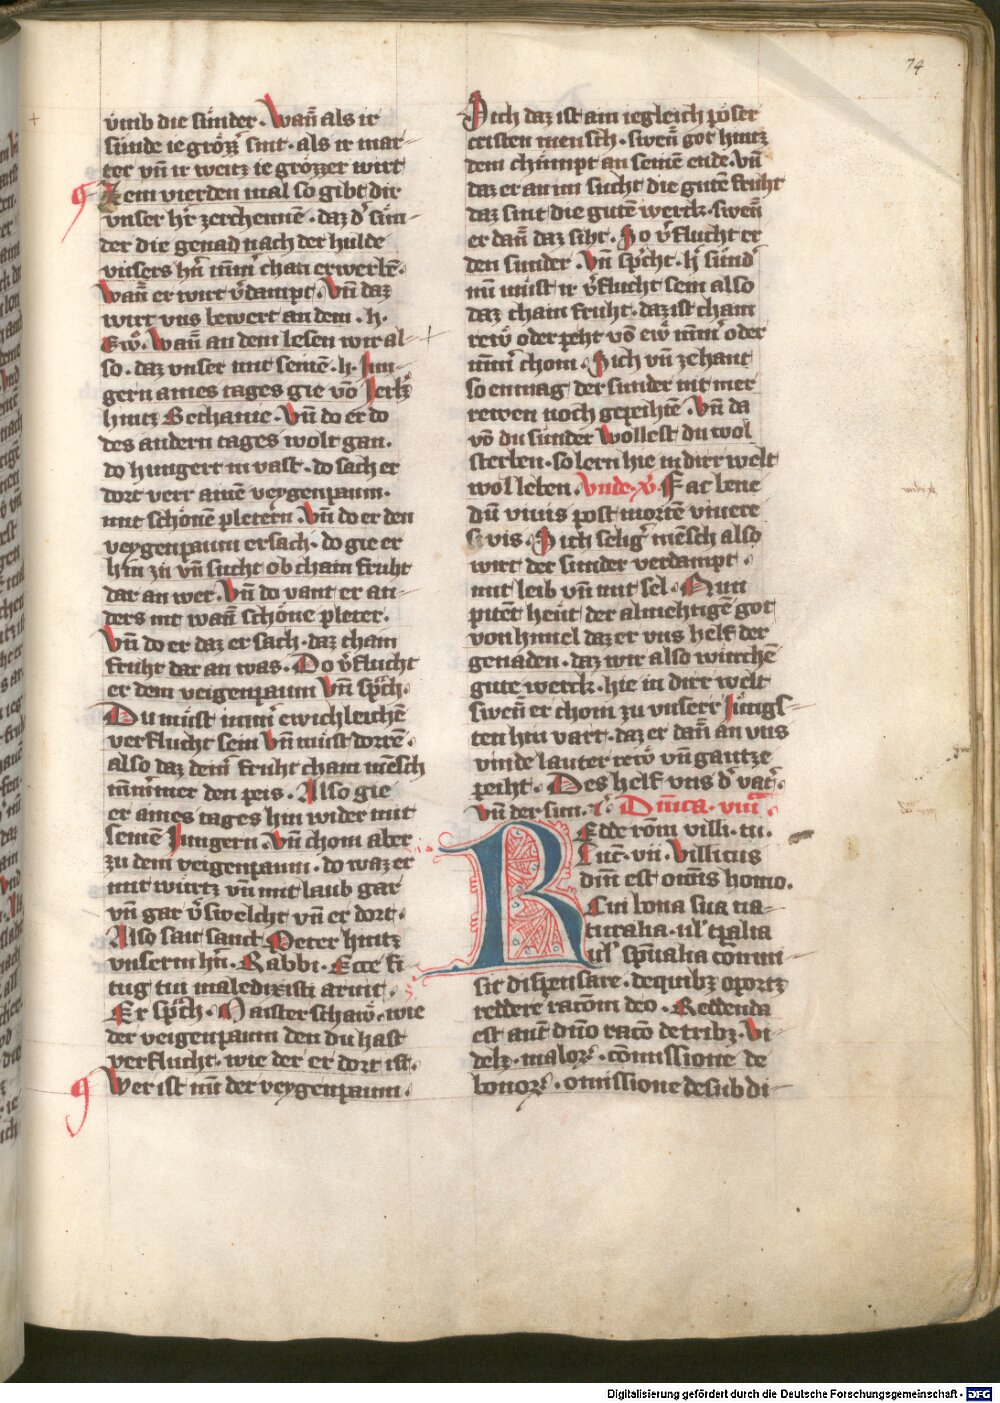 74
vmb die sunder. Wan̄ als ir
sunde ie grözz sint. als ir mar-
ter vn̄ ir weitz ie grözzer wirt
Zem vierden mal so gibt dir
vnser hr̄ zerchennē. daz d' sün-
der die genad nach der hulde
vnsers hn̄ nīm̄ chan erwerbē.
Wan̄ er wirt v'dampt. Vn̄ daz
wirt vns bewert an dem. h.
Ew̄. Wan̄ an dem lesen wir al-
so. daz vnser mit seinē. h. Jun-
gern aines tages gie vō Jerl'z
hintz Bethanie. Vn̄ do er do
des andern tages wolt gan.
do hungert in vast. do sach er
dort verr ainē veygenpaum.
mit schönē pletern. Vn̄ do er den
veygenpaum ersach. do gie er
hin zu vn̄ sucht ob chain fruht
dar an wer. Vn̄ do vant er an-
ders nit wan̄ schöne pleter.
Vn̄ do er daz er sach. daz chain
fruht dar an was. Do v'flucht
er dem veigenpaum Vn̄ sp̄ch.
Du müst im̄m' ewichleichē
verflucht sein Vn̄ müst dorrē.
also daz dein' fruht chain mēsch
nīm̄mer den peis. Also gie
er aines tages hin wider mit
seinē Jungern. Vn̄ chom aber
zu dem veigenpaum. do waz er
mit würtz vn̄ mit laub gar
vn̄ gar v'swelcht vn̄ er dort.
Also sait sand Peter hintz
vnserm hn̄. Rabbi. Ecce fi
cug cui maledixisti aruit.
Er sp̄ch. Maister schaw. wie
der veigenpaum den du hast
verflucht. wie der er dort ist.
Wer ist nu der veygenpaum.
Sich daz ist ain iegleich pöser
cristen mensch. swen̄ got hintz
dem chümpt an seinē ende. Vn̄
daz er an im sucht die gutē fruht
daz sint die gutē werck. swen̄
er dan̄ daz siht. So v'flucht er
den sunder. Vn̄ sp'cht. h' sund'
nu müst ir v'flucht sein also
daz chain fruht. daz ist chain
rew oder peht vō ew nīm̄' oder
nīm̄' chom. Sich vn̄ zehant
so enmag der sunder nit mer
rewen noch gepeihtē. Vn̄ da
vō du sunder Wollest du wol
sterben. so lern hie in dirr welt
wol leben. Vnde. v̊. Fac bene
dum viuis post mortē viuere
si vis. Sich selig' mēsch also
wirt der sunder verdampt.
mit leib vn̄ mit sel. Nun
pitēt heüt der almehtigē got
von himel daz er vns helf der
genaden. daz wir also würchē
gute werck. hie in dirr welt
swen̄ er chom zu vnserr Jüngs-
ten hin vart. daz er dan̄ an vns
vinde lauter rew vn̄ gantze
peiht. Des helf vns d' vat'.
Vn̄ der sun. 7c. Dn̄ica. viii.
Redde rōm villi. tu.
Luc̄. vii. Villicus
dn̄i est om̄is homo.
Cui bona sua na-
turalia. ul' tp̄alia
ul' sp̄ualia cōmi-
sit dispensare. de quibz oportz
reddere racōm deo. Reddenda
est aut̄ dn̄o racō de tribz. Vi
delz. malor̄. cōmissione de
bonor̄. omissione de subdi-
Digitalisierung gefördert durch die Deutsche Forschungsgemeinschaft - DFG